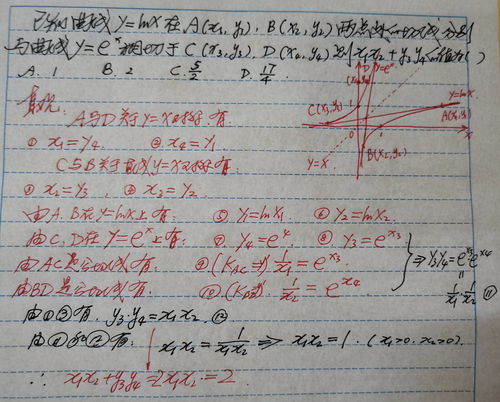 已知曲线 y=lnx 在 A(x₁,y₁), B(x₂,y₂) 两点处的切线分别
与曲线 y=eˣ 相切于 C(x₃,y₃), D(x₄,y₄) 则 x₁x₂+y₃y₄的值为( )
A. 1 B. 2 C. 5/2 D. 17/4
A与D关于y=x对称有.
① x₁=y₄. ② x₄=y₁
C与B关于直线y=x对称有.
③ x₂=y₃ ④ x₃=y₂
由A.B在y=lnx上有: ⑤ y₁=lnx₁ ⑥ y₂=lnx₂
由C.D在y=eˣ上有: ⑦ y₄=eˣ⁴ ⑧ y₃=eˣ³
由AC是公切线有. ⑨ (K_AC=) 1/x₁=eˣ³
由BD是公切线有. ⑩ (K_BD=) 1/x₂=eˣ⁴
⇒ y₃y₄=eˣ³eˣ⁴
=
1/x₁ · 1/x₂ ⑪
由①③有. y₃·y₄=x₁x₂ ⑫
由⑪和⑫有: x₁x₂=1/(x₁x₂) ⇒ x₁x₂=1. (x₁>0. x₂>0)
∴ x₁x₂+y₃y₄=2x₁x₂=2.
(x₄,y₄)
D
y=eˣ
C(x₃,y₃)
1
y=lnx
A(x₁,y₁)
0
x
B(x₂,y₂)
y=x